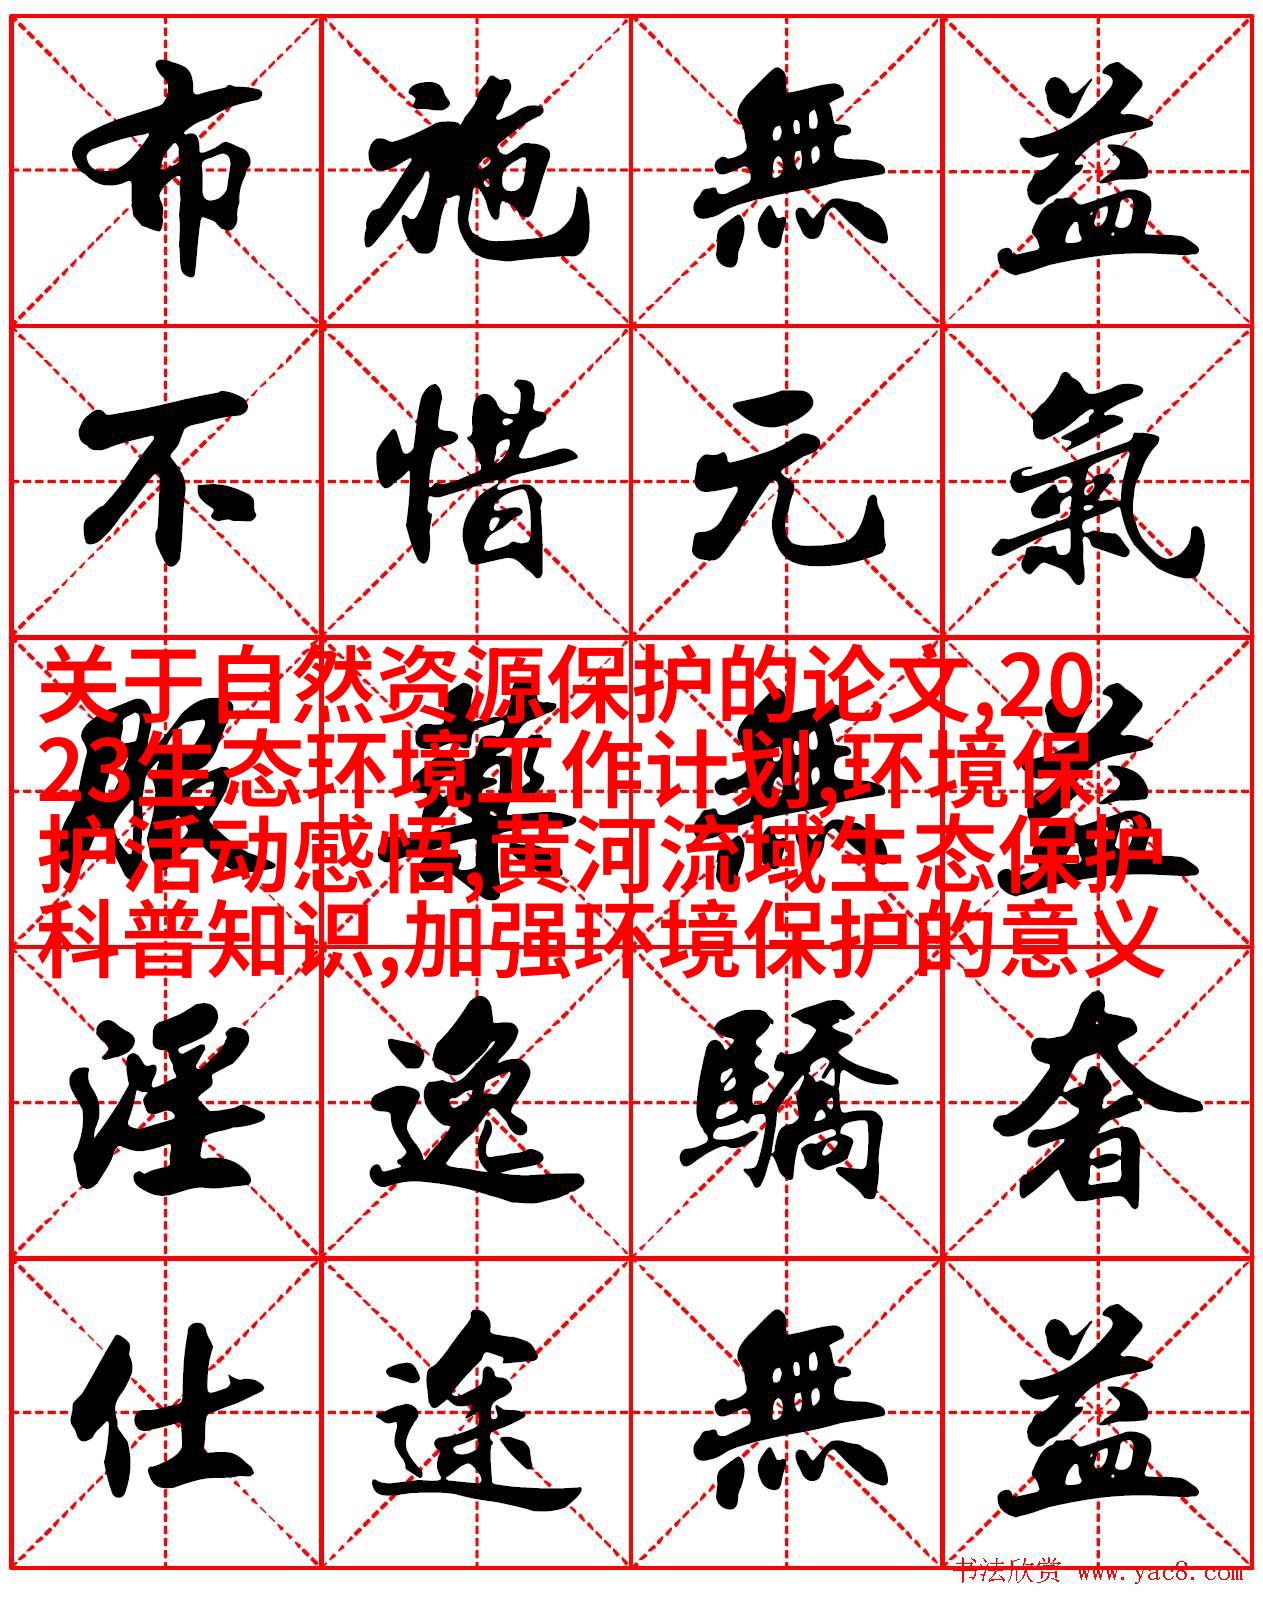 布施無益
不惜元氣
服藥無益
关于自然资源保护的论文,20
23生态环境工作计划,环境保
护活动感悟,黄河流域生态保护
科普知识,加强环境保护的意义
淫逸驕奢
仕途無益
书法欣赏 www.yac8.com